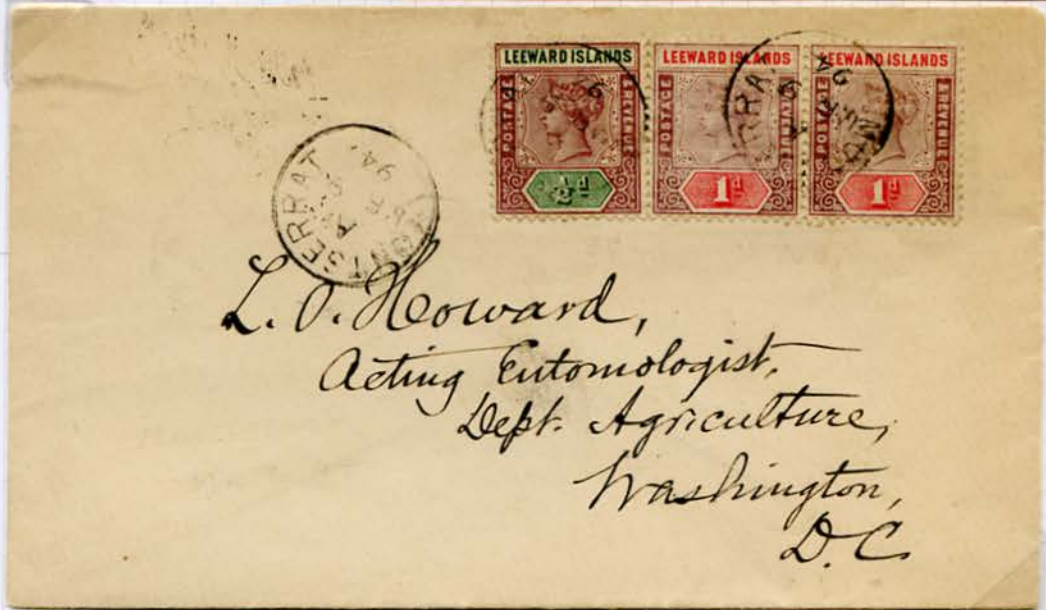 LEEWARD ISLANDS
POSTAGE & REVENUE
½d
LEEWARD ISLANDS
POSTAGE REVENUE
1d
LEEWARD ISLANDS
POSTAGE & REVENUE
1d
MONTSERRAT
A
94
RRAT
A
94
L. O. Howard,
Acting Entomologist,
Dept. Agriculture,
Washington,
D.C